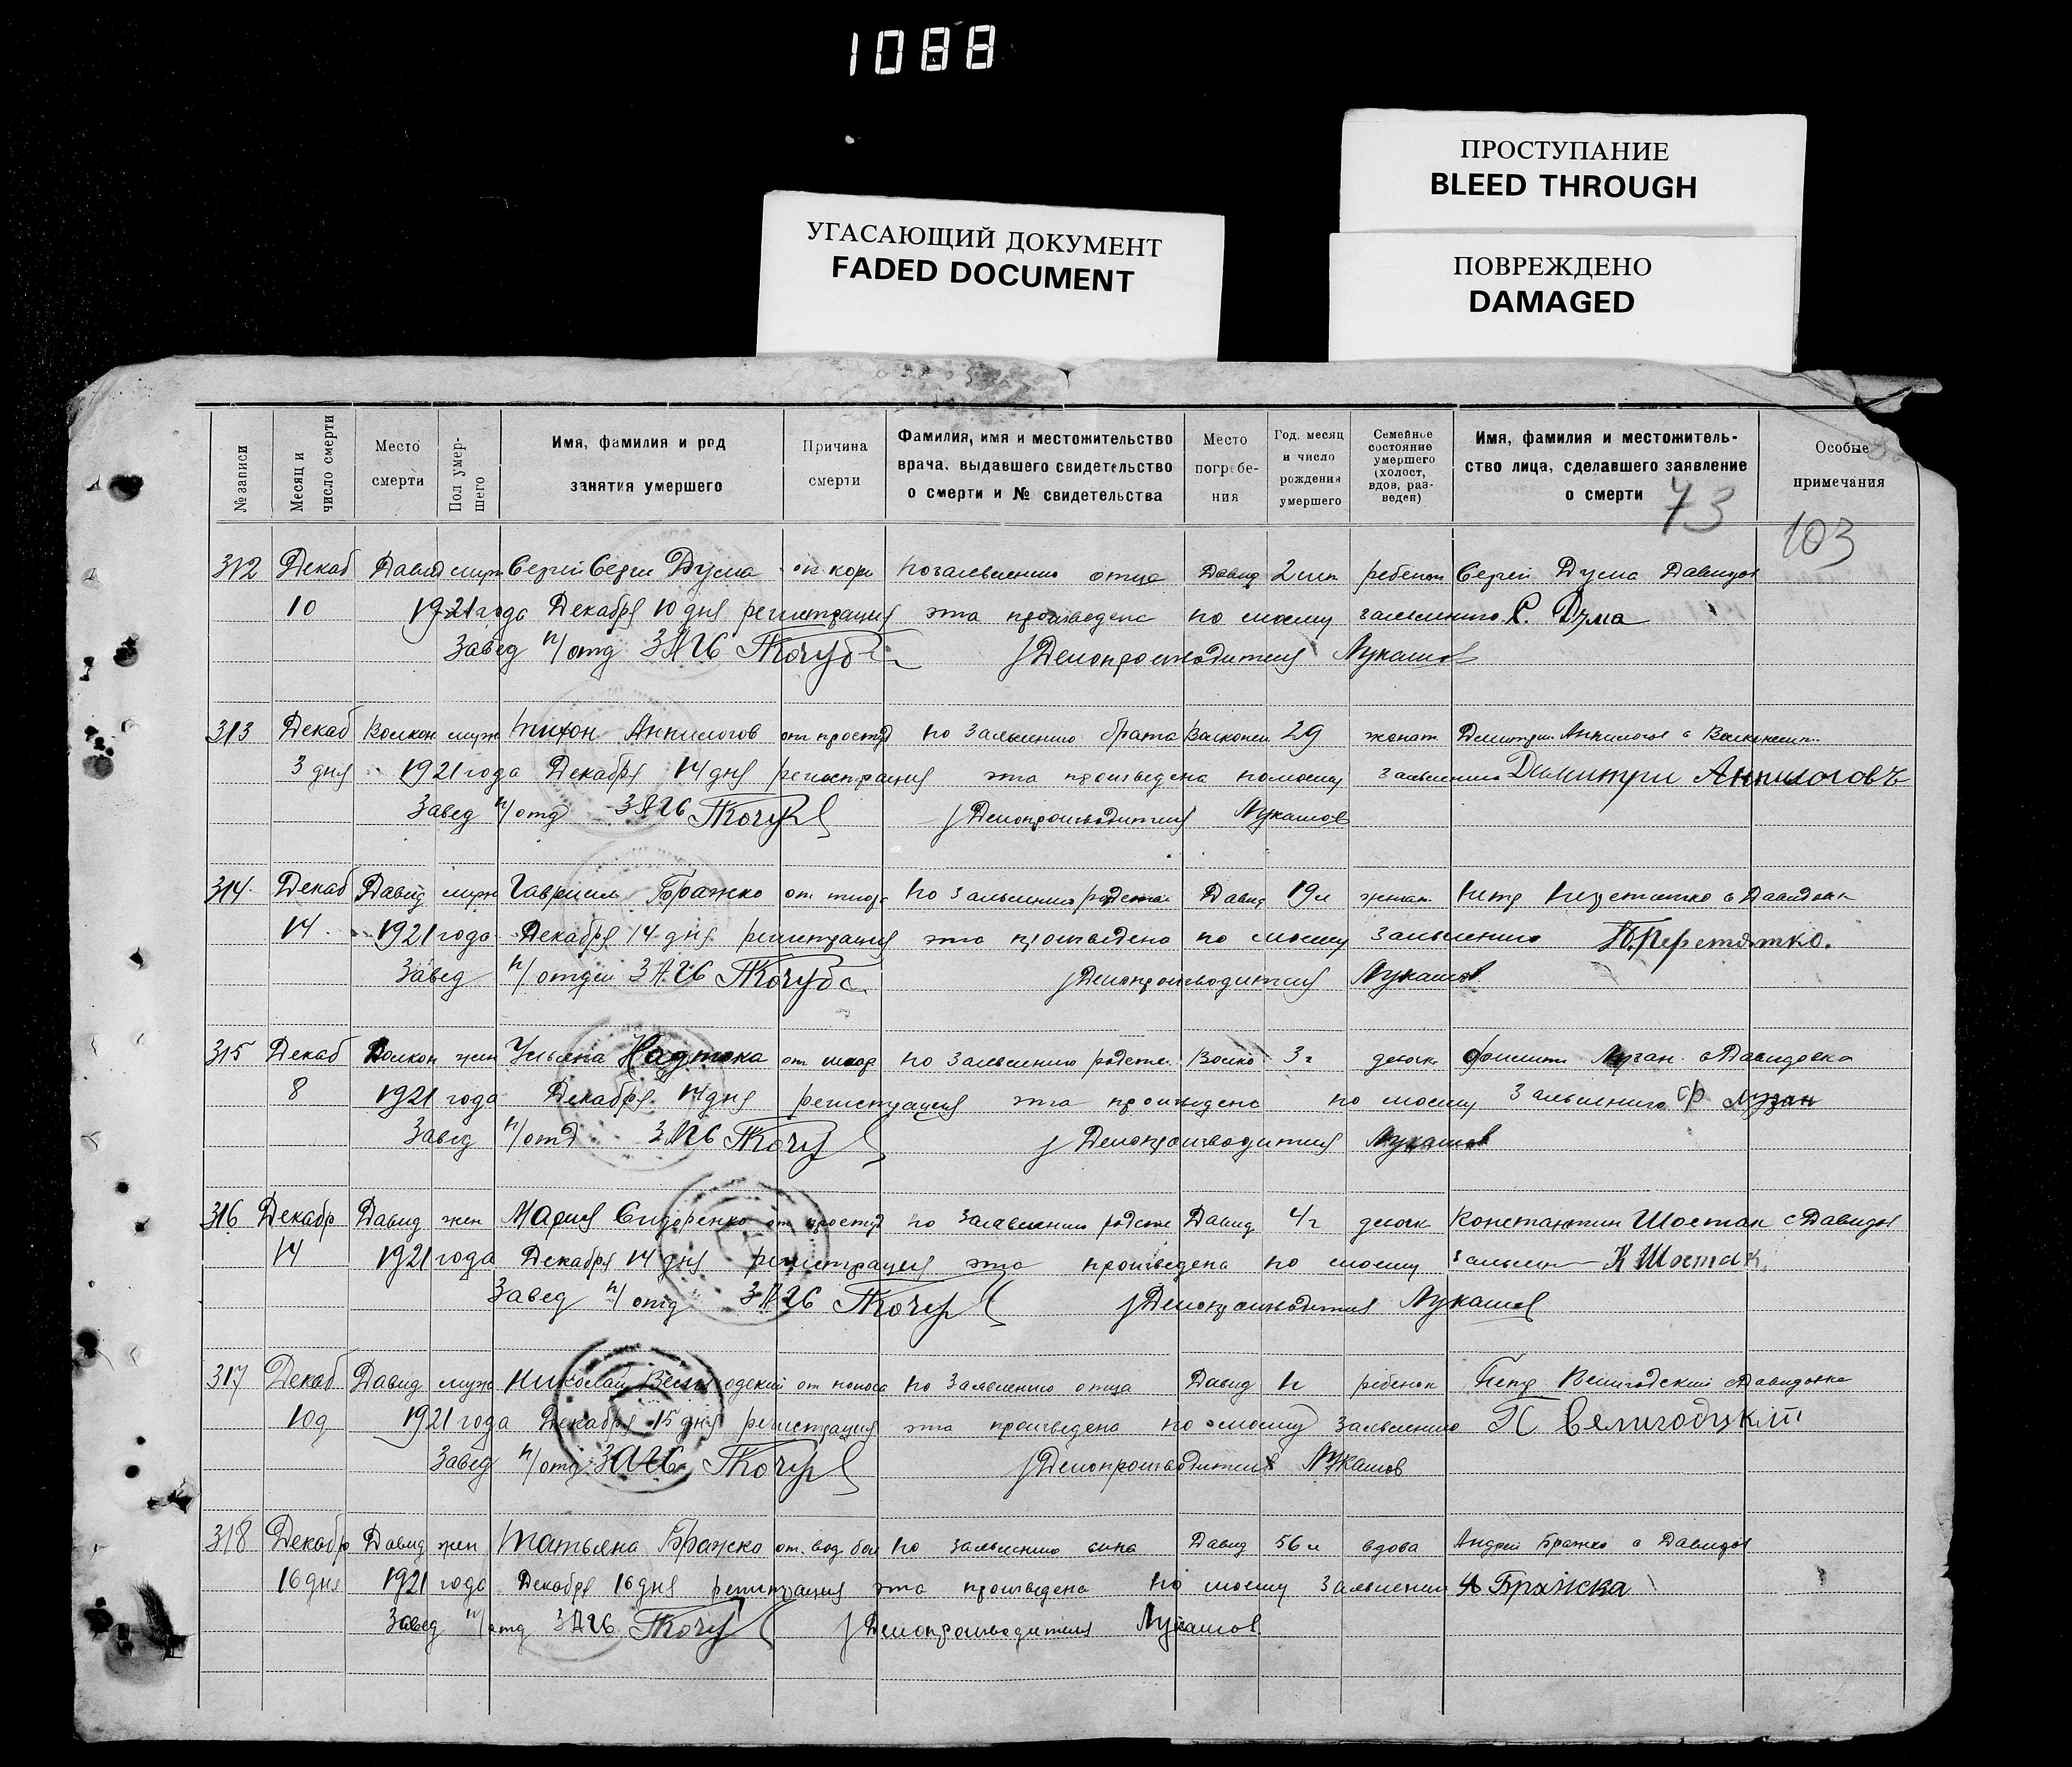 1088
ПРОСТУПАНИЕ
BLEED THROUGH
УГАСАЮЩИЙ ДОКУМЕНТ
FADED DOCUMENT
ПОВРЕЖДЕНО
DAMAGED
№ записи
Месяц и число смерти
Место смерти
Пол умершего
Имя, фамилия и род занятия умершего
Причина смерти
Фамилия, имя и местожительство врача, выдавшего свидетельство о смерти и № свидетельства
Место погребения
Год, месяц и число рождения умершего
Семейное состояние умершего (холост, вдов, разведен)
Имя, фамилия и местожительство лица, сделавшего заявление о смерти
Особые примечания
73
103
312 Декаб Давид муж Сергей Серги Дума от кори по заявлению отца Давид 2 ребенок Сергей Дума Давидов
10 1921 года Декабря 10 дня регистрация эта произведена по моему заявлению С. Дума
Завед п/отд ЗАГС Кочуб Делопроизводитель Лукашов
313 Декаб Волкон муж Тихон Анпилогов от простуд по заявлению брата Волконск 29 женат Дмитрий Анпилогов с
3 дня 1921 года Декабря 14 дня регистрация эта произведена по моему заявлению Димитри Анпилоговъ
Завед п/отд ЗАГС Делопроизводитель Лукашов
314 Декаб Давид муж Гавриил Бражко от тифа по заявлению родства Давид 19 л женат Петр Перетятко с Давидовк
14 1921 года Декабря 14 дня регистрация эта произведена по моему заявлению П. Перетятко.
Завед п/отдел ЗАГС Кочубе Делопроизводитель Лукашов
315 Декаб Волкон жен Ульяна Надтока от по заявлению родств Волко 3 г девочк Филипп Лузан с Давидовка
8 1921 года Декабря 14 дня регистрация эта произведена по моему заявлению Ф Лузан
Завед п/отд ЗАГС Делопроизводитель Лукашов
316 Декабр Давид жен Мария Сидоренко от простуд по заявлению родств Давид 4 г девочк Константин Шостак с Давидов
14 1921 года Декабря 14 дня регистрация эта произведена по моему заявлен К Шостак.
Завед п/отд ЗАГС Делопроизводитель Лукашов
317 Декаб Давид муж Николай Велигодский от поноса по заявлению отца Давид ребенок Петр Велигодский с Давидовка
10 д 1921 года Декабря 15 дня регистрация эта произведена по моему заявлению П Велигодцкий
Завед п/отд ЗАГС Делопроизводителя Лукашов
318 Декабр Давид жен Татьяна Бражко от. вод. бол по заявлению сына Давид 56 л вдова Андрей Бражко с Давидов
16 дня 1921 года Декабря 16 дня регистрация эта произведена по моему заявлению А Бражка
Завед п/отд ЗАГС Делопроизводителя Лукашов